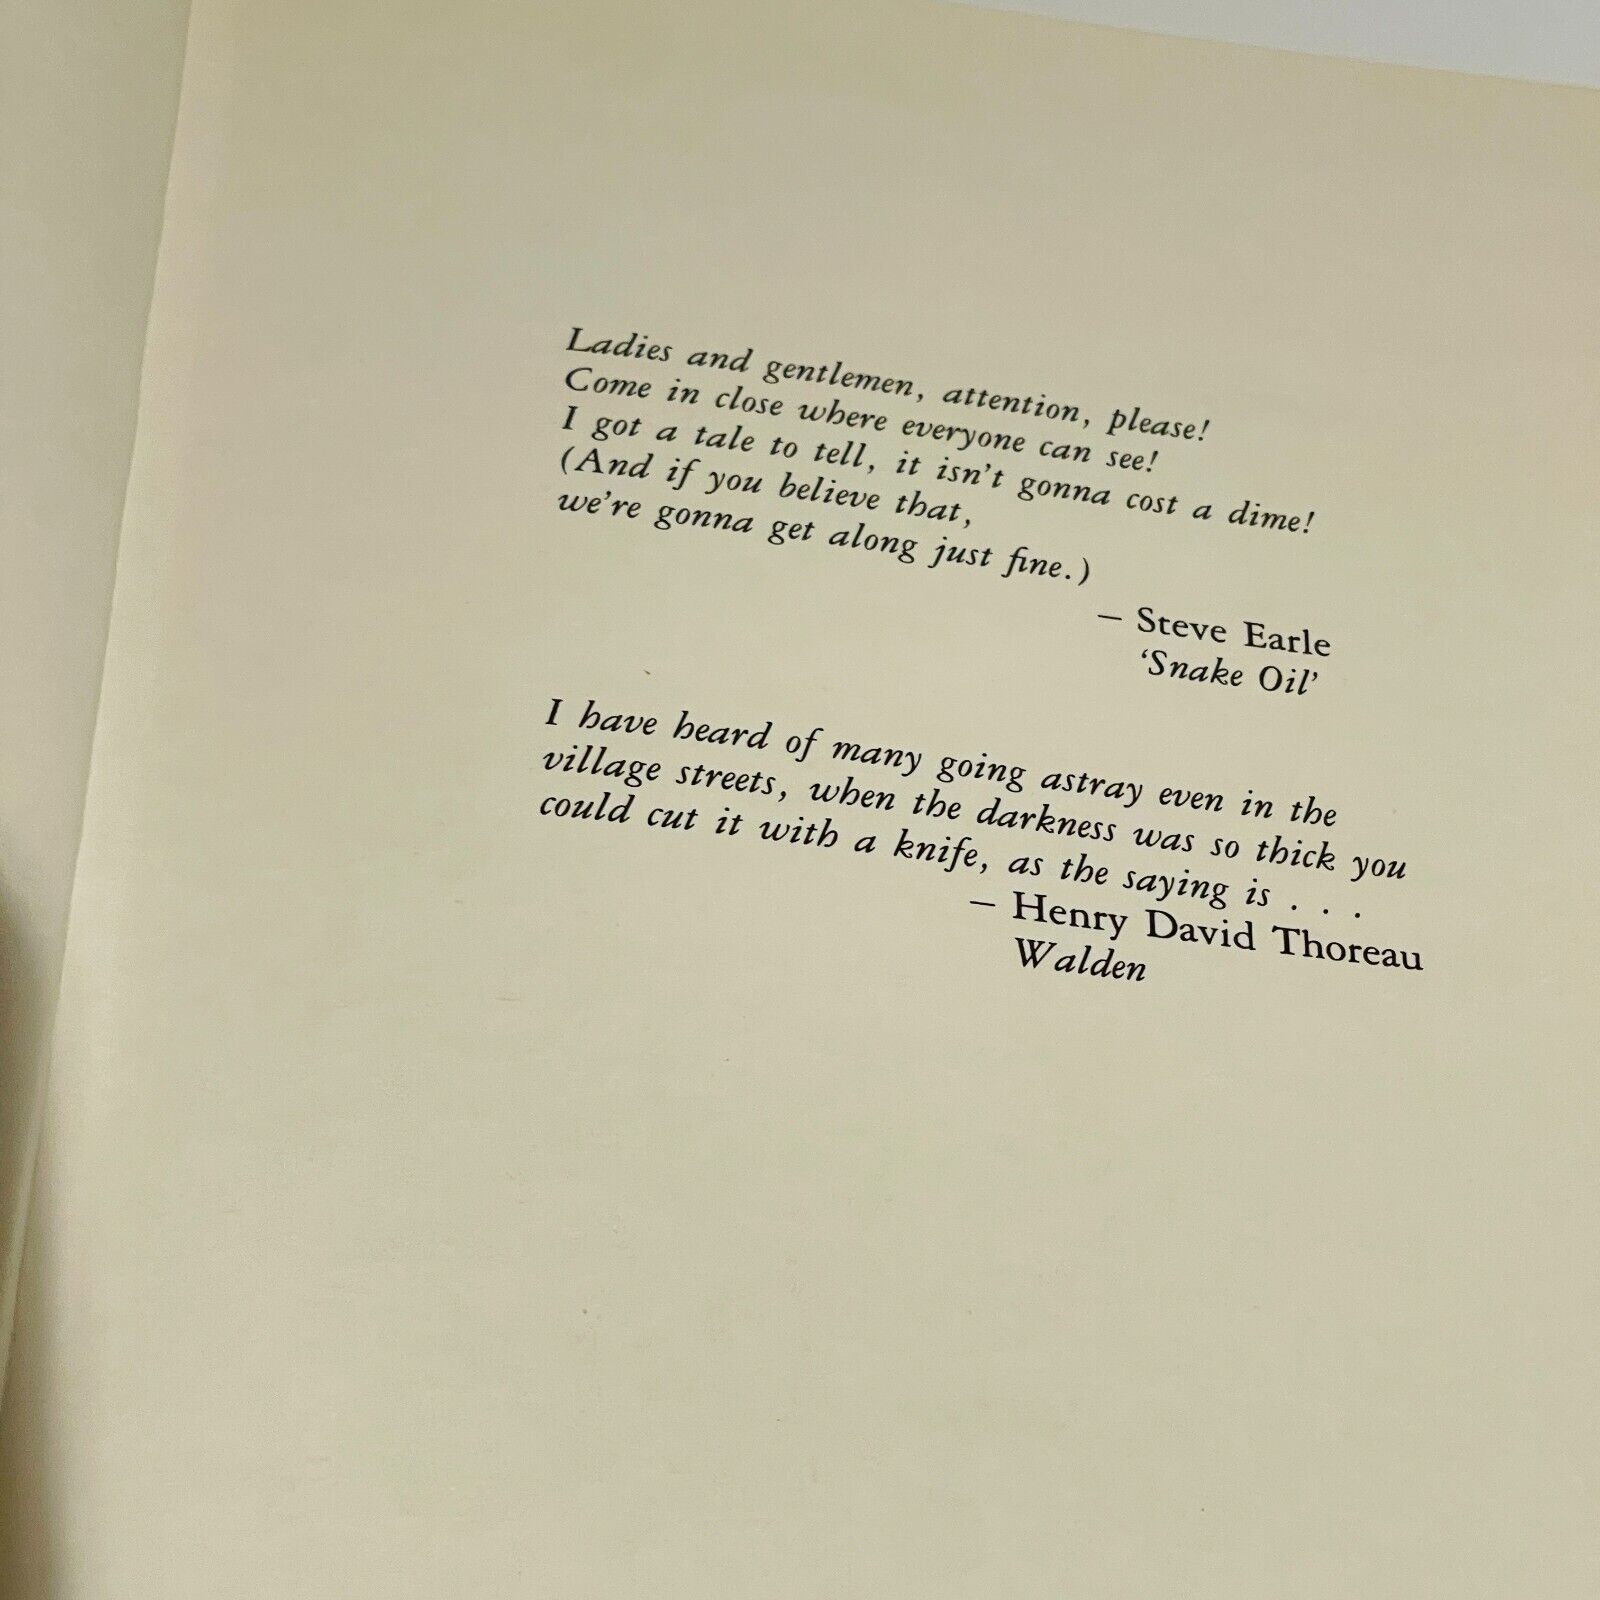 Ladies and gentlemen, attention, please!
Come in close where everyone can see!
I got a tale to tell, it isn't gonna cost a dime!
(And if you believe that,
we're gonna get along just fine.)
– Steve Earle
'Snake Oil'
I have heard of many going astray even in the
village streets, when the darkness was so thick you
could cut it with a knife, as the saying is . . .
– Henry David Thoreau
Walden